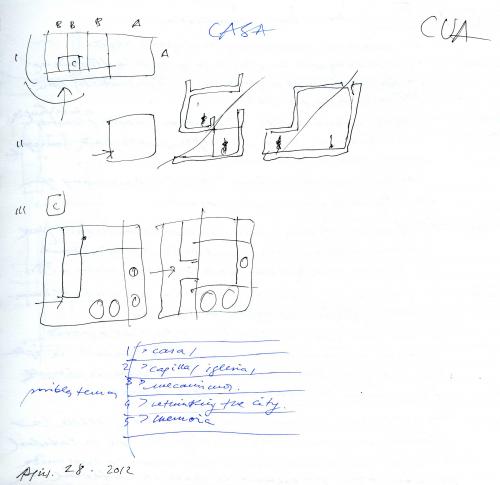 B B B A
CASA
CUA
I
C
A
II
III
C
1 > casa,
2 > capilla, iglesia,
posibles temas 3 > mecanismos.
4 > rethinking the city.
5 > memoria
28 . 2012